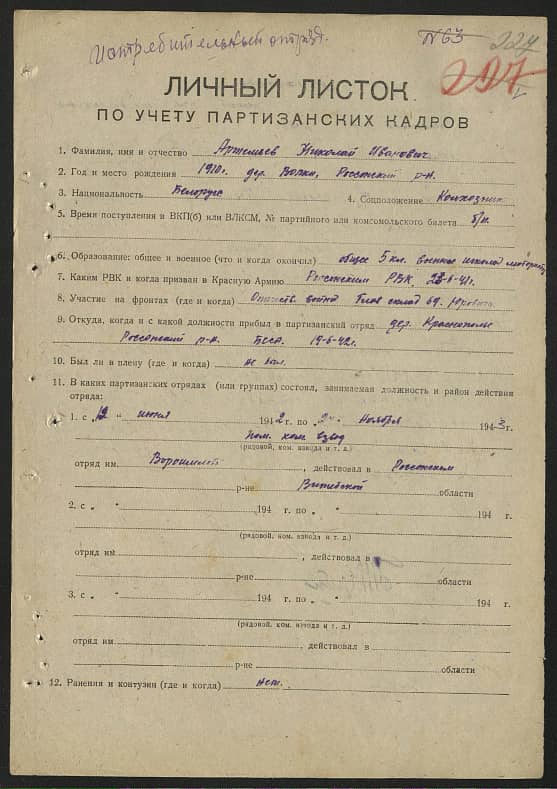 Истребительный отряд.
N 63
224
227
ЛИЧНЫЙ ЛИСТОК
ПО УЧЕТУ ПАРТИЗАНСКИХ КАДРОВ
1. Фамилия, имя и отчество Артемьев Николай Иванович
2. Год и место рождения 1910г. дер. Волки, Россонский р-н.
3. Национальность Белорус 4. Соцположение Колхозник
5. Время поступления в ВКП(б) или ВЛКСМ, № партийного или комсомольского билета б/п.
6. Образование: общее и военное (что и когда окончил) общее 5 кл. военное школа
7. Каким РВК и когда призван в Красную Армию Россонским РВК, 23-6-41г.
8. Участие на фронтах (где и когда) Отечеств. война склад
9. Откуда, когда и с какой должности прибыл в партизанский отряд дер. Краснополье
Россонский р-н. БССР. 19-6-42г.
10. Был ли в плену (где и когда) не был.
11. В каких партизанских отрядах (или группах) состоял, занимаемая должность и район действия
отряда:
1. с „19 “ июня 1942 г. по „ “ Ноября 1943г.
Пом. ком. взвод
(рядовой, ком. взвода и т. д.)
отряд им. , действовал в Россонском
р-не Витебской области
2. с „ “ 194 г. по „ “ 194 г.
(рядовой, ком. взвода и т. д.)
отряд им , действовал в
р-не области
3. с „ “ 194 г. по „ “ 194 г.
(рядовой, ком. взвода и т. д.)
отряд им , действовал в
р-не области
12. Ранения и контузии (где и когда) нет.